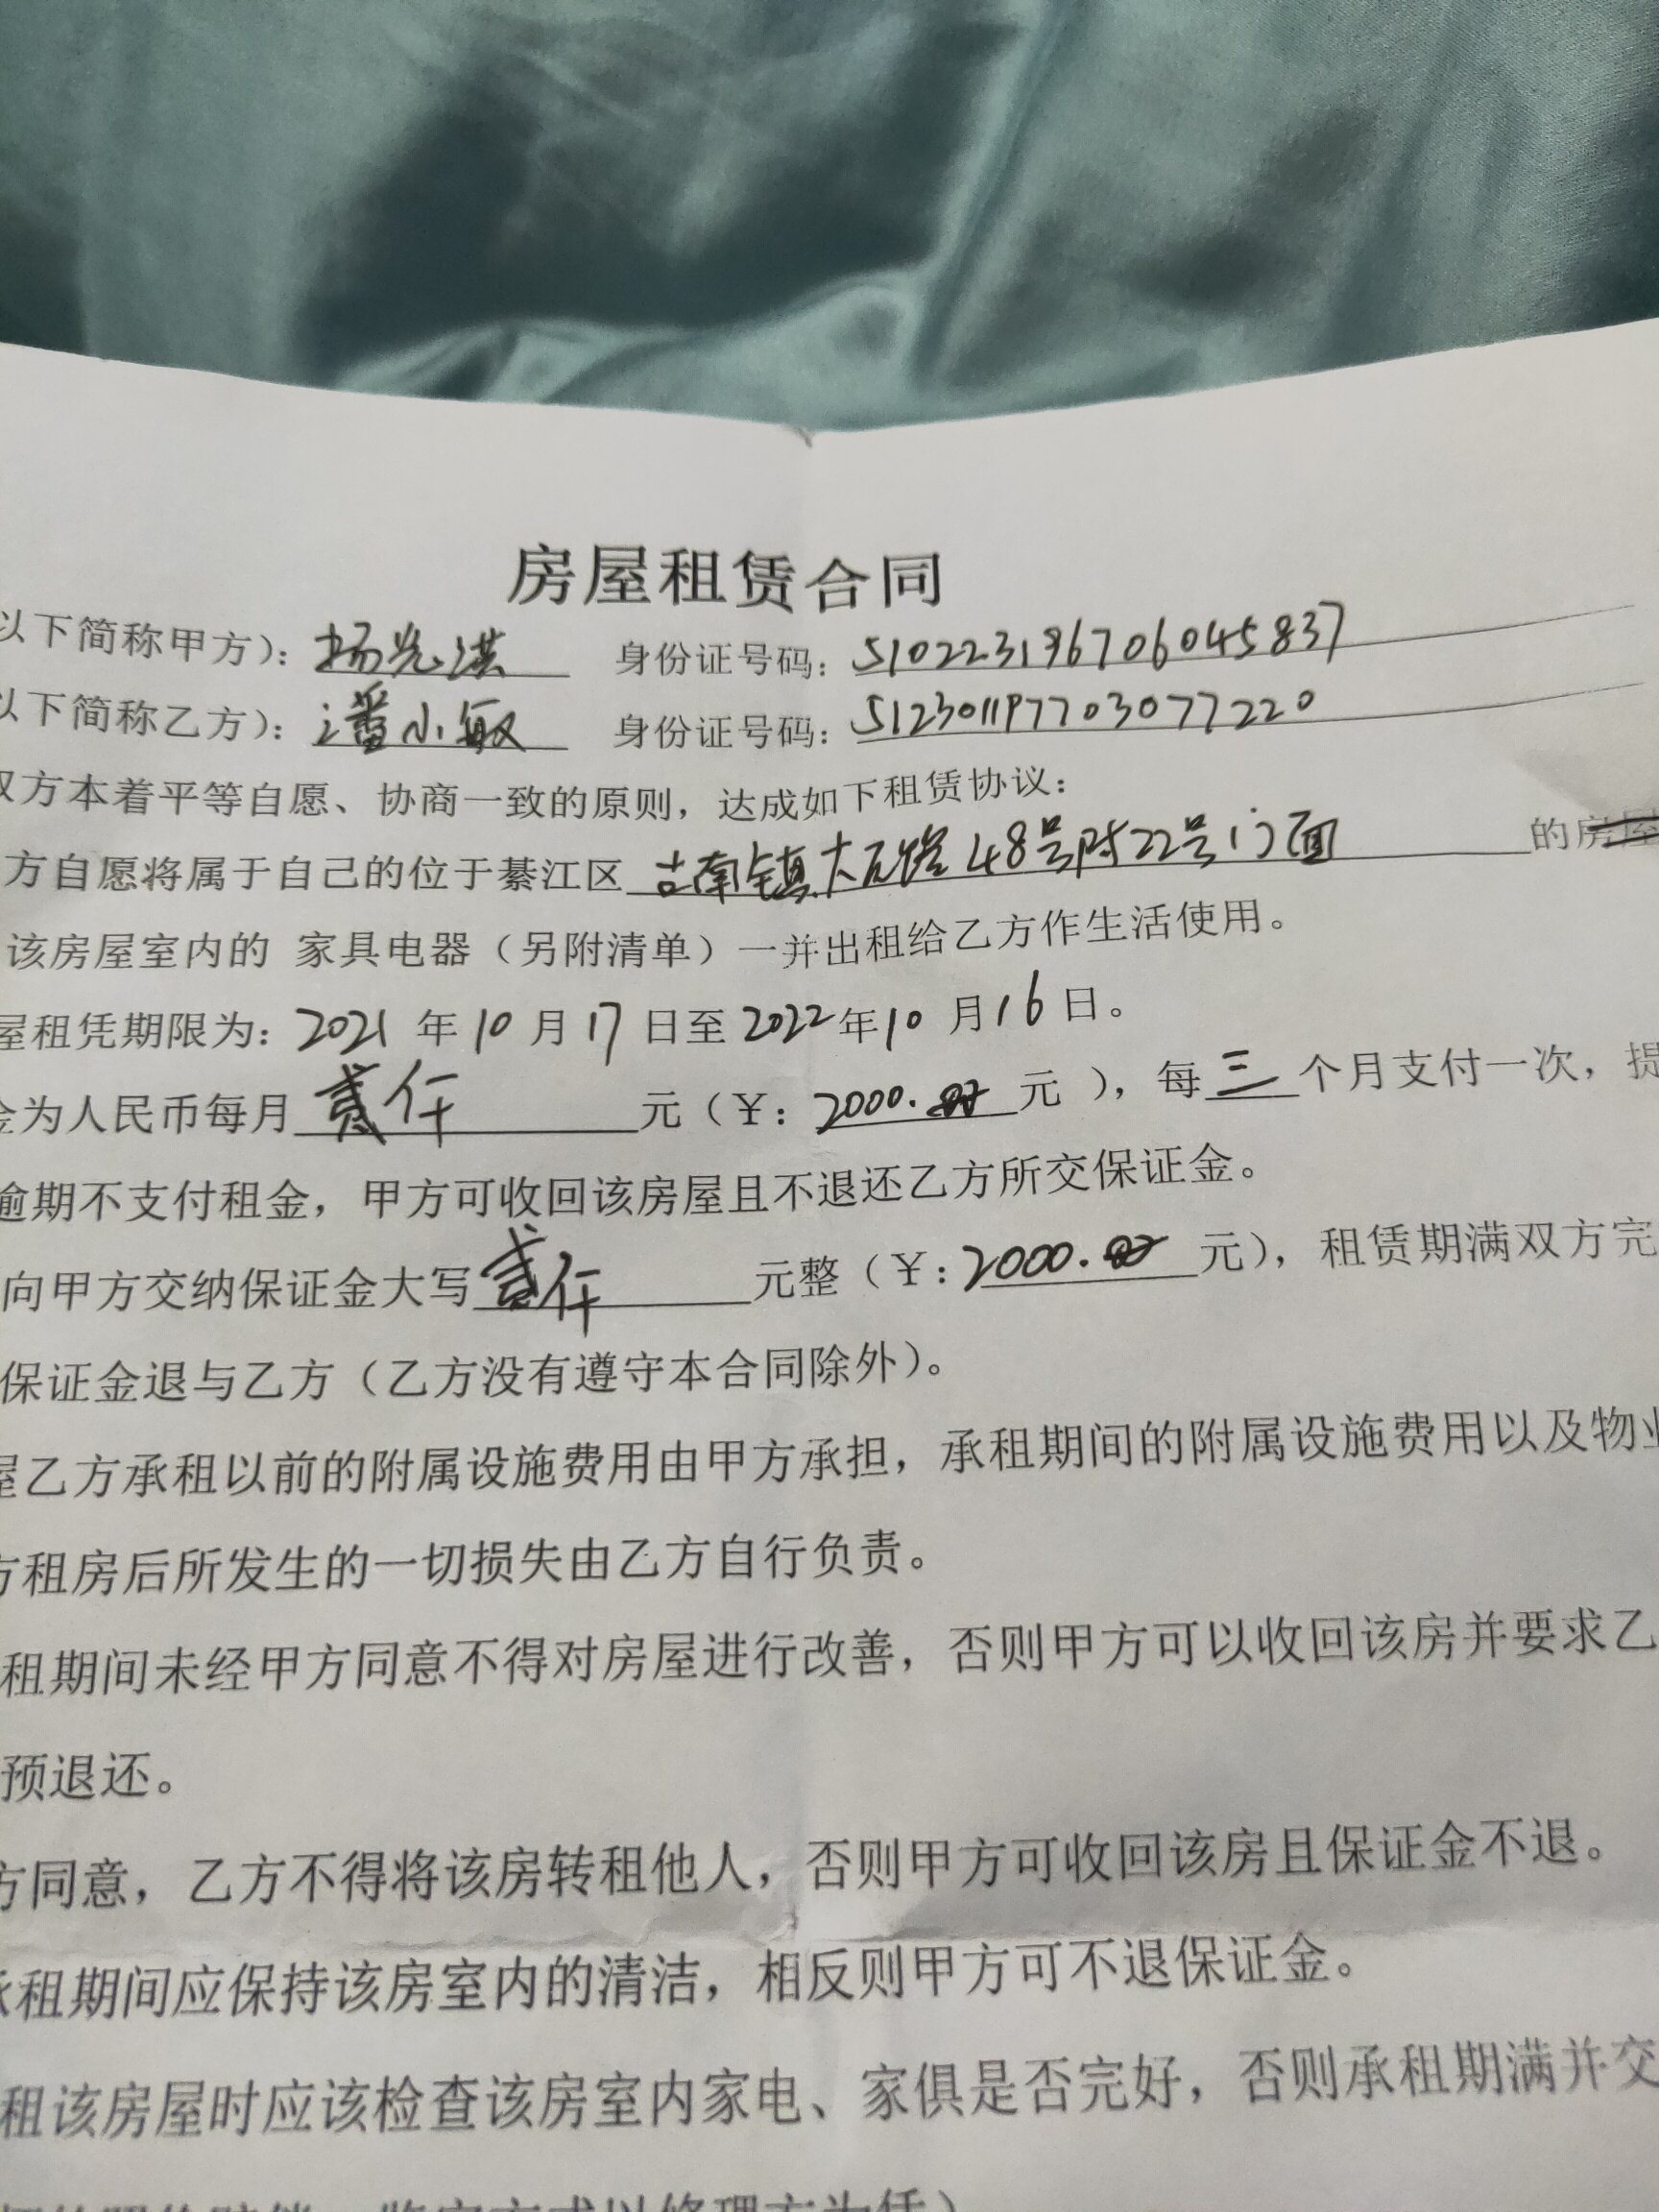 房屋租赁合同
以下简称甲方）：杨光洪 身份证号码：510223196706045837
以下简称乙方）：潘小敏 身份证号码：512301197703077220
双方本着平等自愿、协商一致的原则，达成如下租赁协议：
方自愿将属于自己的位于綦江区古南镇大石堡48号附22号门面的房屋
该房屋室内的 家具电器（另附清单）一并出租给乙方作生活使用。
屋租凭期限为：2021年10月17日至2022年10月16日。
金为人民币每月贰仟元（￥：2000.00元），每三个月支付一次，提
逾期不支付租金，甲方可收回该房屋且不退还乙方所交保证金。
向甲方交纳保证金大写贰仟元整（￥：2000.00元），租赁期满双方完
保证金退与乙方（乙方没有遵守本合同除外）。
屋乙方承租以前的附属设施费用由甲方承担，承租期间的附属设施费用以及物业
方租房后所发生的一切损失由乙方自行负责。
租期间未经甲方同意不得对房屋进行改善，否则甲方可以收回该房并要求乙
预退还。
方同意，乙方不得将该房转租他人，否则甲方可收回该房且保证金不退。
承租期间应保持该房室内的清洁，相反则甲方可不退保证金。
租该房屋时应该检查该房室内家电、家俱是否完好，否则承租期满并交